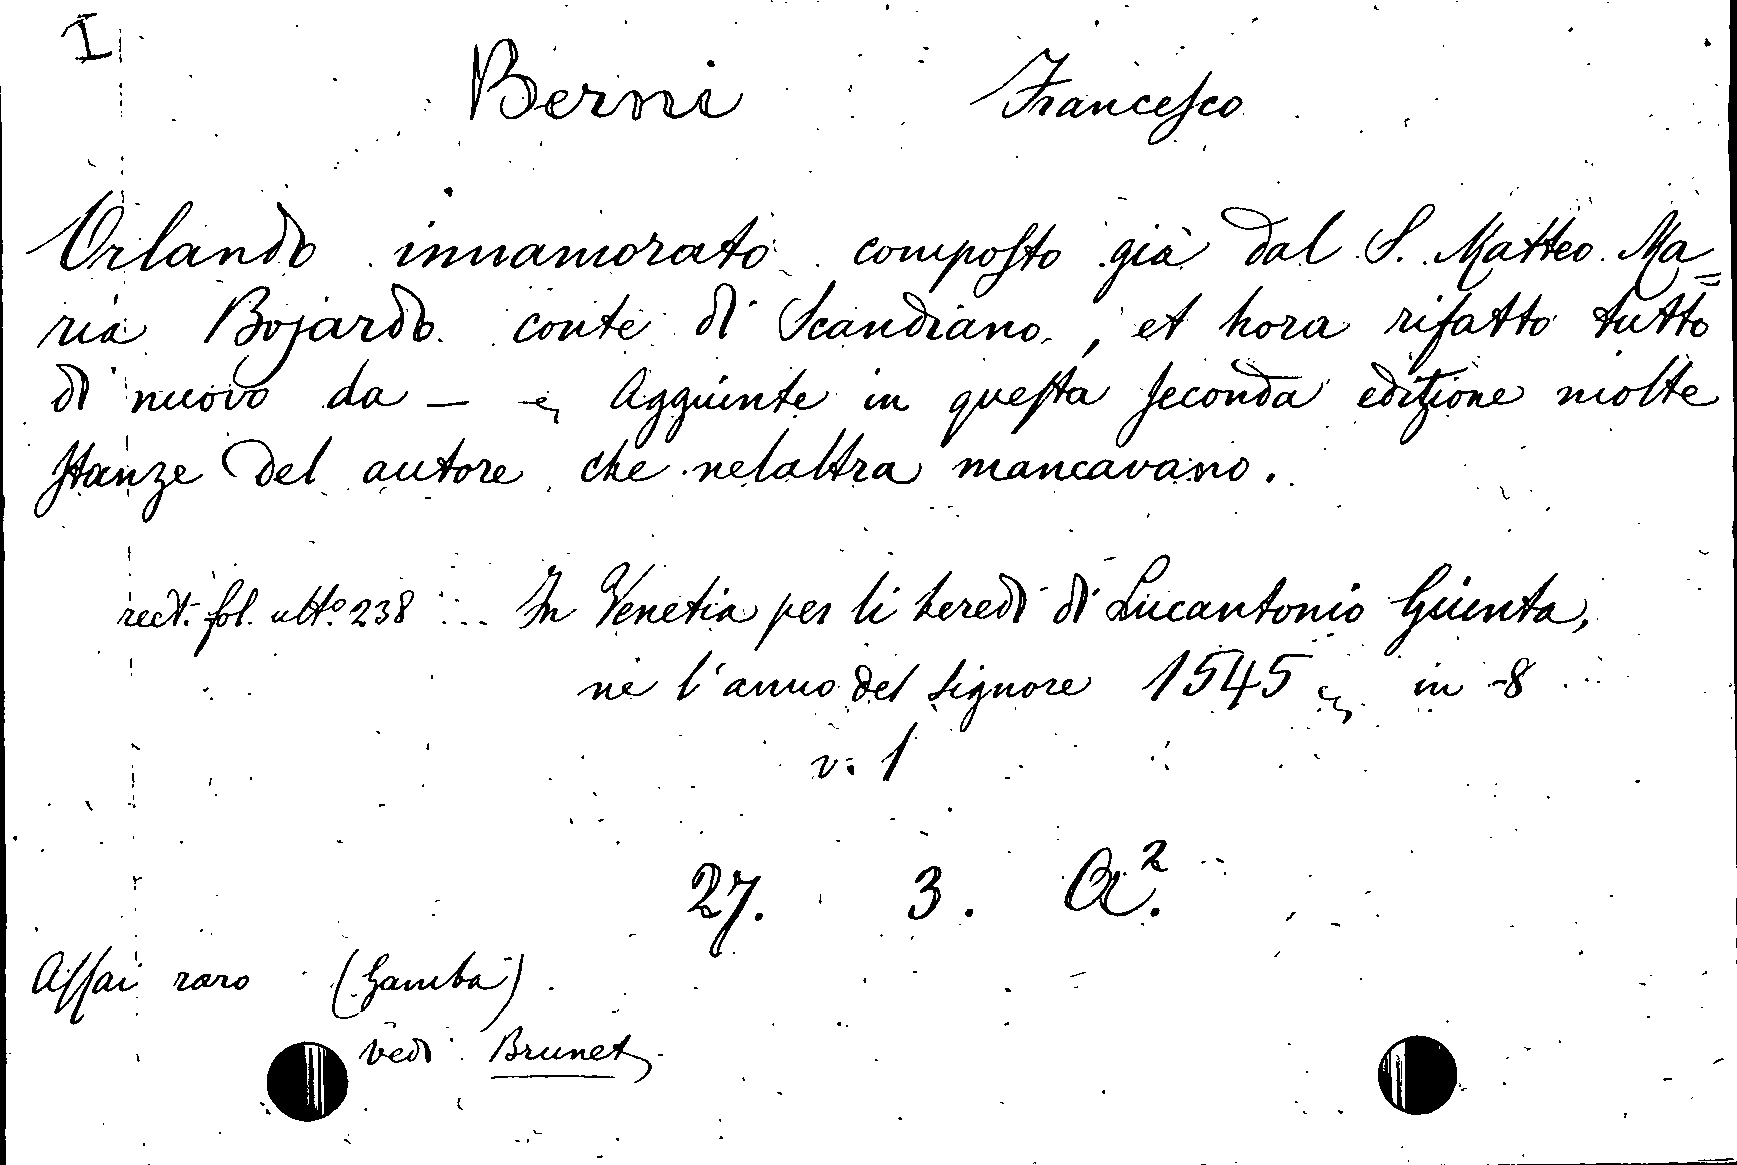 I
Berni Francesco
Orlando innamorato composto già dal S. Matteo Ma=
ria Bojardo conte di Scandiano, et hora rifatto tutto
di nuovo da — e, Aggiunte in questa seconda edizione molte
stanze del autore che nelaltra mancavano.
rect. fol. ult.º 238 ... In Venetia per li heredi di Lucantonio Giunta,
ne l'anno del signore 1545 in -8
v. 1
27. 3. a².
Assai raro (Gamba)
vedi Brunet